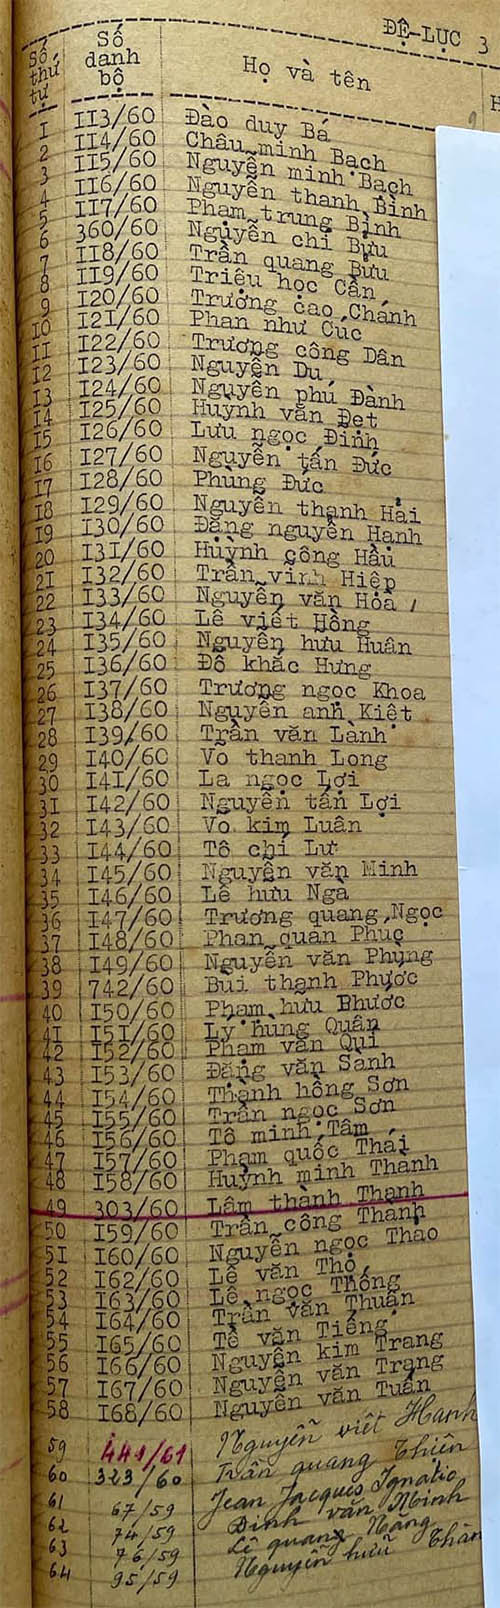 ĐỆ-LỤC 3
Số thứ tự Số danh bộ Họ và tên H
1 II3/60 Đào duy Bá
2 II4/60 Châu minh Bạch
3 II5/60 Nguyễn minh Bạch
4 II6/60 Nguyễn thanh Bình
5 II7/60 Phạm trung Bình
6 360/60 Nguyễn chi Bửu
7 II8/60 Trần quang Bửu
8 II9/60 Triệu học Cần
9 I20/60 Trưởng cao Chánh
IO I2I/60 Phan như Cúc
II I22/60 Trương công Dân
I2 I23/60 Nguyễn Du
I3 I24/60 Nguyễn phú Đành
I4 I25/60 Huỳnh văn Đẹt
I5 I26/60 Lưu ngọc Định
I6 I27/60 Nguyễn tấn Đức
I7 I28/60 Phùng Đức
I8 I29/60 Nguyễn thanh Hải
I9 I30/60 Đặng nguyên Hạnh
20 I3I/60 Huỳnh công Hầu
2I I32/60 Trần vinh Hiệp
22 I33/60 Nguyễn văn Hoà
23 I34/60 Lê viết Hồng
24 I35/60 Nguyễn hưu Huân
25 I36/60 Đỗ khắc Hưng
26 I37/60 Trương ngọc Khoa
27 I38/60 Nguyễn anh Kiệt
28 I39/60 Trần văn Lành
29 I40/60 Võ thanh Long
30 I4I/60 La ngọc Lợi
3I I42/60 Nguyễn tấn Lợi
32 I43/60 Võ kim Luân
33 I44/60 Tô chí Lư
34 I45/60 Nguyễn văn Minh
35 I46/60 Lê hưu Ngà
36 I47/60 Trương quang Ngọc
37 I48/60 Phan quan Phúc
38 I49/60 Nguyễn văn Phụng
39 742/60 Bùi thanh Phước
40 I50/60 Phạm hữu Phước
4I I5I/60 Lý hùng Quân
42 I52/60 Phạm văn Qui
43 I53/60 Đặng văn Sành
44 I54/60 Thành hồng Sơn
45 I55/60 Trần ngọc Sơn
46 I56/60 Tô minh Tâm
47 I57/60 Phạm quốc Thái
48 I58/60 Huỳnh minh Thành
49 303/60 Lâm thành Thạnh
50 I59/60 Trần công Thành
5I I60/60 Nguyễn ngọc Thảo
52 I62/60 Lê văn Thọ
53 I63/60 Lê ngọc Thống
54 I64/60 Trần văn Thuận
55 I65/60 Tề văn Tiếng
56 I66/60 Nguyễn kim Trang
57 I67/60 Nguyễn văn Trạng
58 I68/60 Nguyễn văn Tuấn
59 441/61 Nguyễn viết Hạnh
60 323/60 Trần quang Thiện
61 67/59 Jean Jacques Ignatio
62 74/59 Đinh văn Minh
63 76/59 Lê quang Năng
64 95/59 Nguyễn hữu